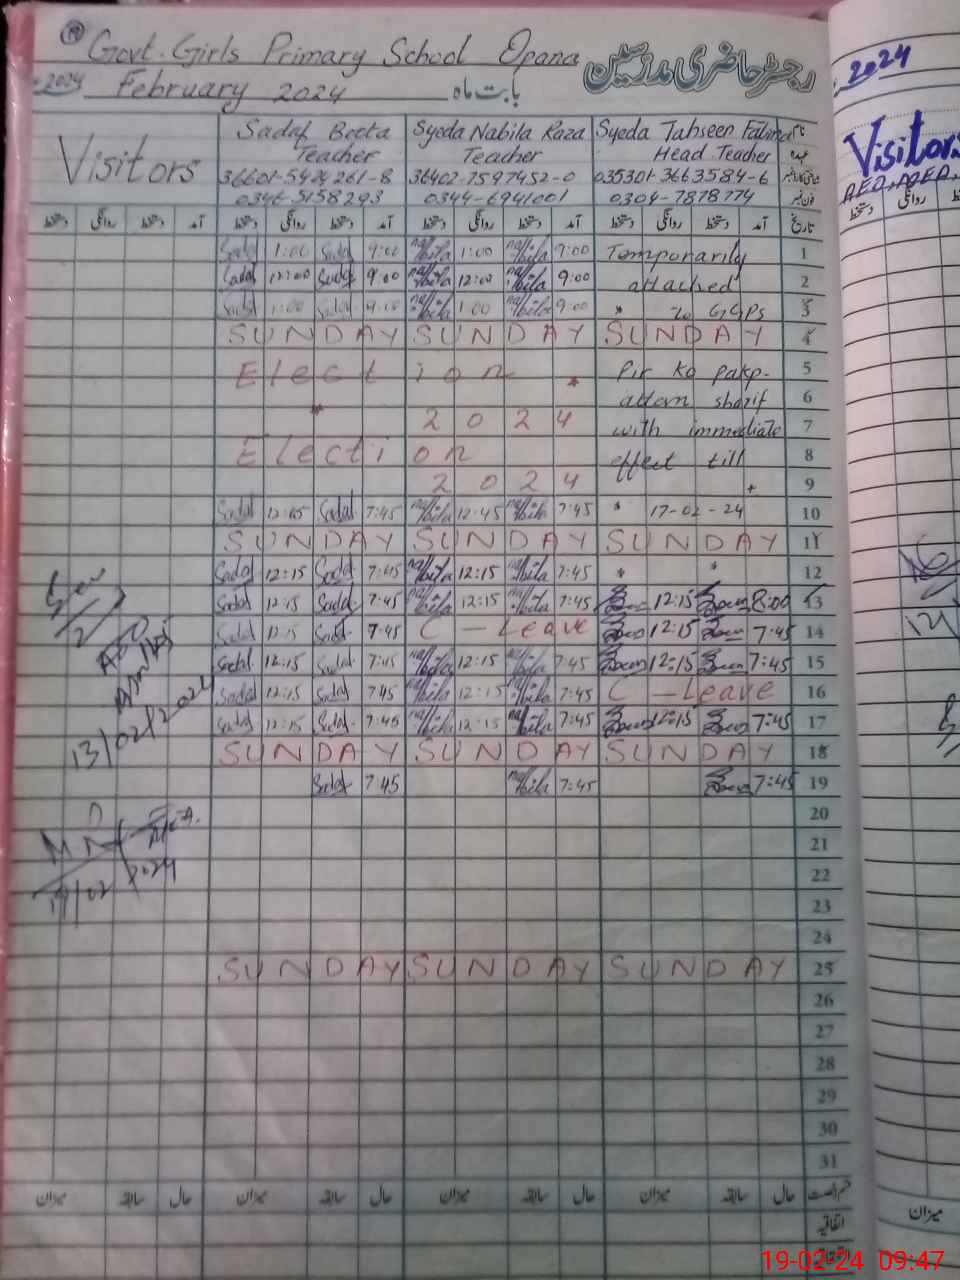 19
Govt. Girls Primary School Opana
رجسٹر حاضری مدرسین
2024
February 2024 بابت ماہ
Visitors
Sadaf Beeta Syeda Nabila Raza Syeda Tahseen Fatima نام
Teacher Teacher Head Teacher عہدہ
36601-5424261-8 36402-7597452-0 035301-3663584-6
0346-5158293 0344-6941001 0304-7878774 فون نمبر
دستخط روانگی دستخط آمد دستخط روانگی دستخط آمد دستخط روانگی دستخط آمد دستخط روانگی دستخط آمد تاریخ
Sadaf 1:00 Sadaf 9:00 Nabila 1:00 Nabila 9:00 Temporarily 1
Sadaf 12:00 Sadaf 9:00 Nabila 12:00 Nabila 9:00 attached 2
Sadaf 1:00 Sadaf 9:00 Nabila 1:00 Nabila 9:00 " to GGPS 3
SUNDAY SUNDAY SUNDAY 4
Election Pir ko pakp- 5
attan sharif 6
2024 with immediate 7
Election effect till 8
2024 9
Sadaf 12:45 Sadaf 7:45 Nabila 12:45 Nabila 7:45 " 17-02-24 10
SUNDAY SUNDAY SUNDAY 11
Sadaf 12:15 Sadaf 7:45 Nabila 12:15 Nabila 7:45 " " 12
Sadaf 12:15 Sadaf 7:45 Nabila 12:15 Nabila 7:45 12:15 8:00 13
Sadaf 12:15 Sadaf 7:45 C - Leave 12:15 7:45 14
Sadaf 12:15 Sadaf 7:45 Nabila 12:15 Nabila 7:45 12:15 7:45 15
Sadaf 12:15 Sadaf 7:45 Nabila 12:15 Nabila 7:45 C - Leave 16
Sadaf 12:15 Sadaf 7:45 Nabila 12:15 Nabila 7:45 12:15 7:45 17
SUNDAY SUNDAY SUNDAY 18
Sadaf 7:45 Nabila 7:45 7:45 19
AEO
13/02/2024
20
21
22
19/02/2024
23
24
SUNDAY SUNDAY SUNDAY 25
26
27
28
29
30
31
میزان سابقہ حال میزان سابقہ حال میزان سابقہ حال میزان سابقہ حال قسم رخصت
اتفاقیہ
2024
Visitors
AEO, AAEO
دستخط روانگی دستخط
میزان
19-02-24 09:47